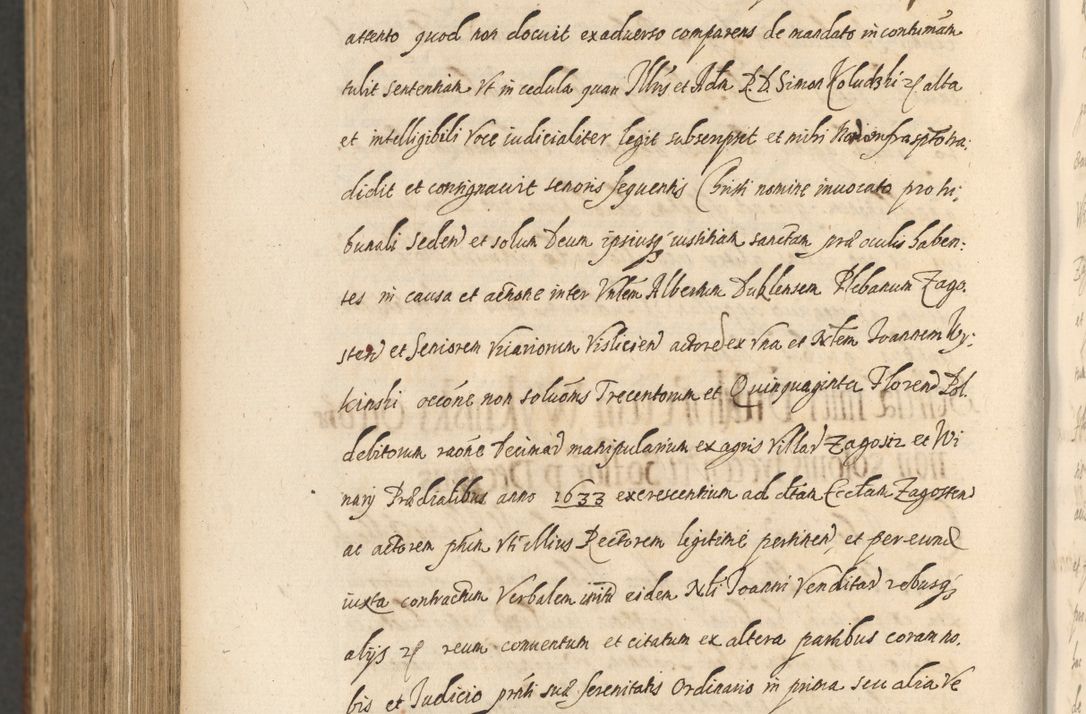 attento quod non docuit exadverso comparens de mandato in contumam
tulit sententiam Vt in cedula quam Illris et Adm R. D. Simon Koludzki etc alta
et intelligibili voce iudicialiter legit subscripsit et mihi Notario infrascpto tra:
didit et consignavit tenoris sequentis Christi nomine invocato pro tri,
bunali seden et solum Deum ipsiusq iustitiam sanctam præ oculis haben:
tes in causa et actione inter Vnlem Albertum Duklensem Plebanum Zago.
sten et Seniorem Vicariorum Vislicien actore ex vna et Nlem Joannem Wy:
kinski occone non soluonis Trecentorum et Quinquaginta Floren Pol.
debitorum raone Decimar manipularium ex agris Villar Zagosiz et Wi
nary Prædialibus anno 1633 excrescentium ad dtam Ecclam Zagosten
ac actorem ptum vti illius Rectorem legitime pertinen et per eund
iuxta contractum Verbalem initu eidem Nli Joanni Venditar rebusq
alijs etc reum conventum et citatum ex altera partibus coram no,
bis et Judicio pnti suæ Serenitatis Ordinario in prima seu alia Ve